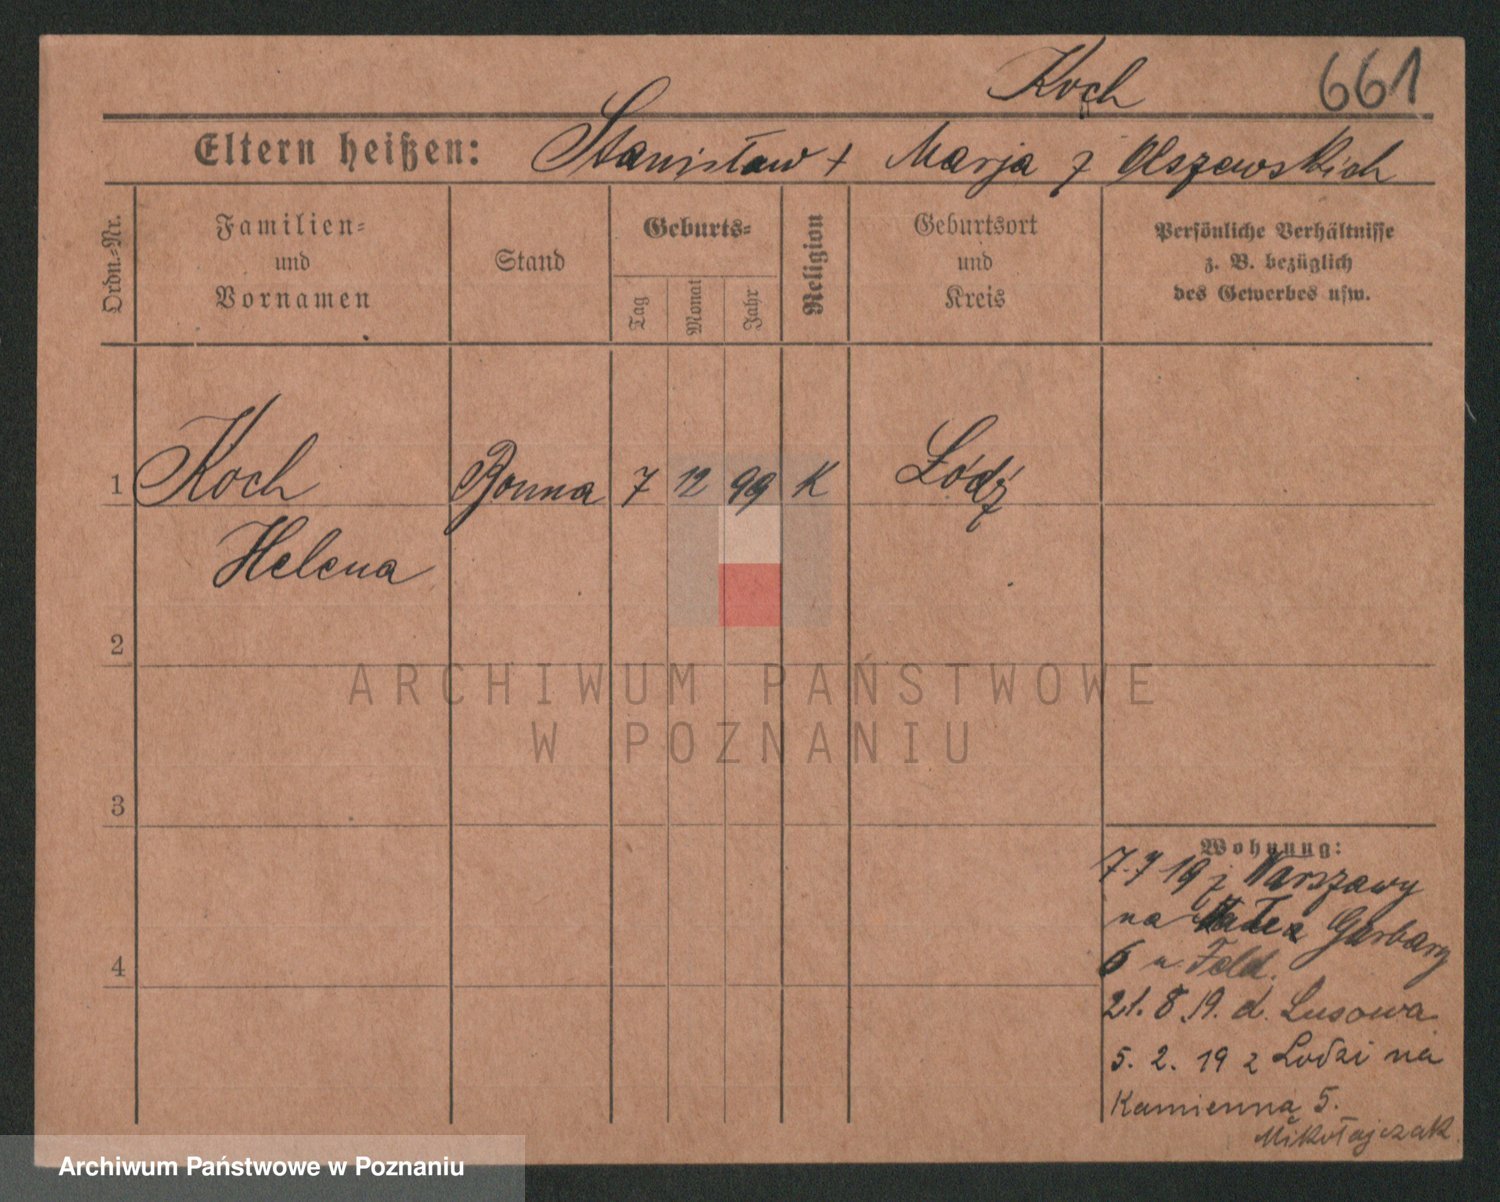 Koch 661
Eltern heißen: Stanisław + Marja z Olszewskich
Ordn.-Nr.
Familien-
und
Vornamen
Stand
Geburts-
Tag
Monat
Jahr
Religion
Geburtsort
und
Kreis
Persönliche Verhältnisse
z. B. bezüglich
des Gewerbes usw.
1 Koch Bonna 7 12 99 K Łódź
Helena
2
3
4
ARCHIWUM PAŃSTWOWE
W POZNANIU
Wohnung:
7.7 19 z Warszawy
na Małe Garbary
6 u Feld.
21.8.19. d. Lusowa
5. 2. 19 z Lodzi na
Kamienna 5.
Mikołajczak
Archiwum Państwowe w Poznaniu